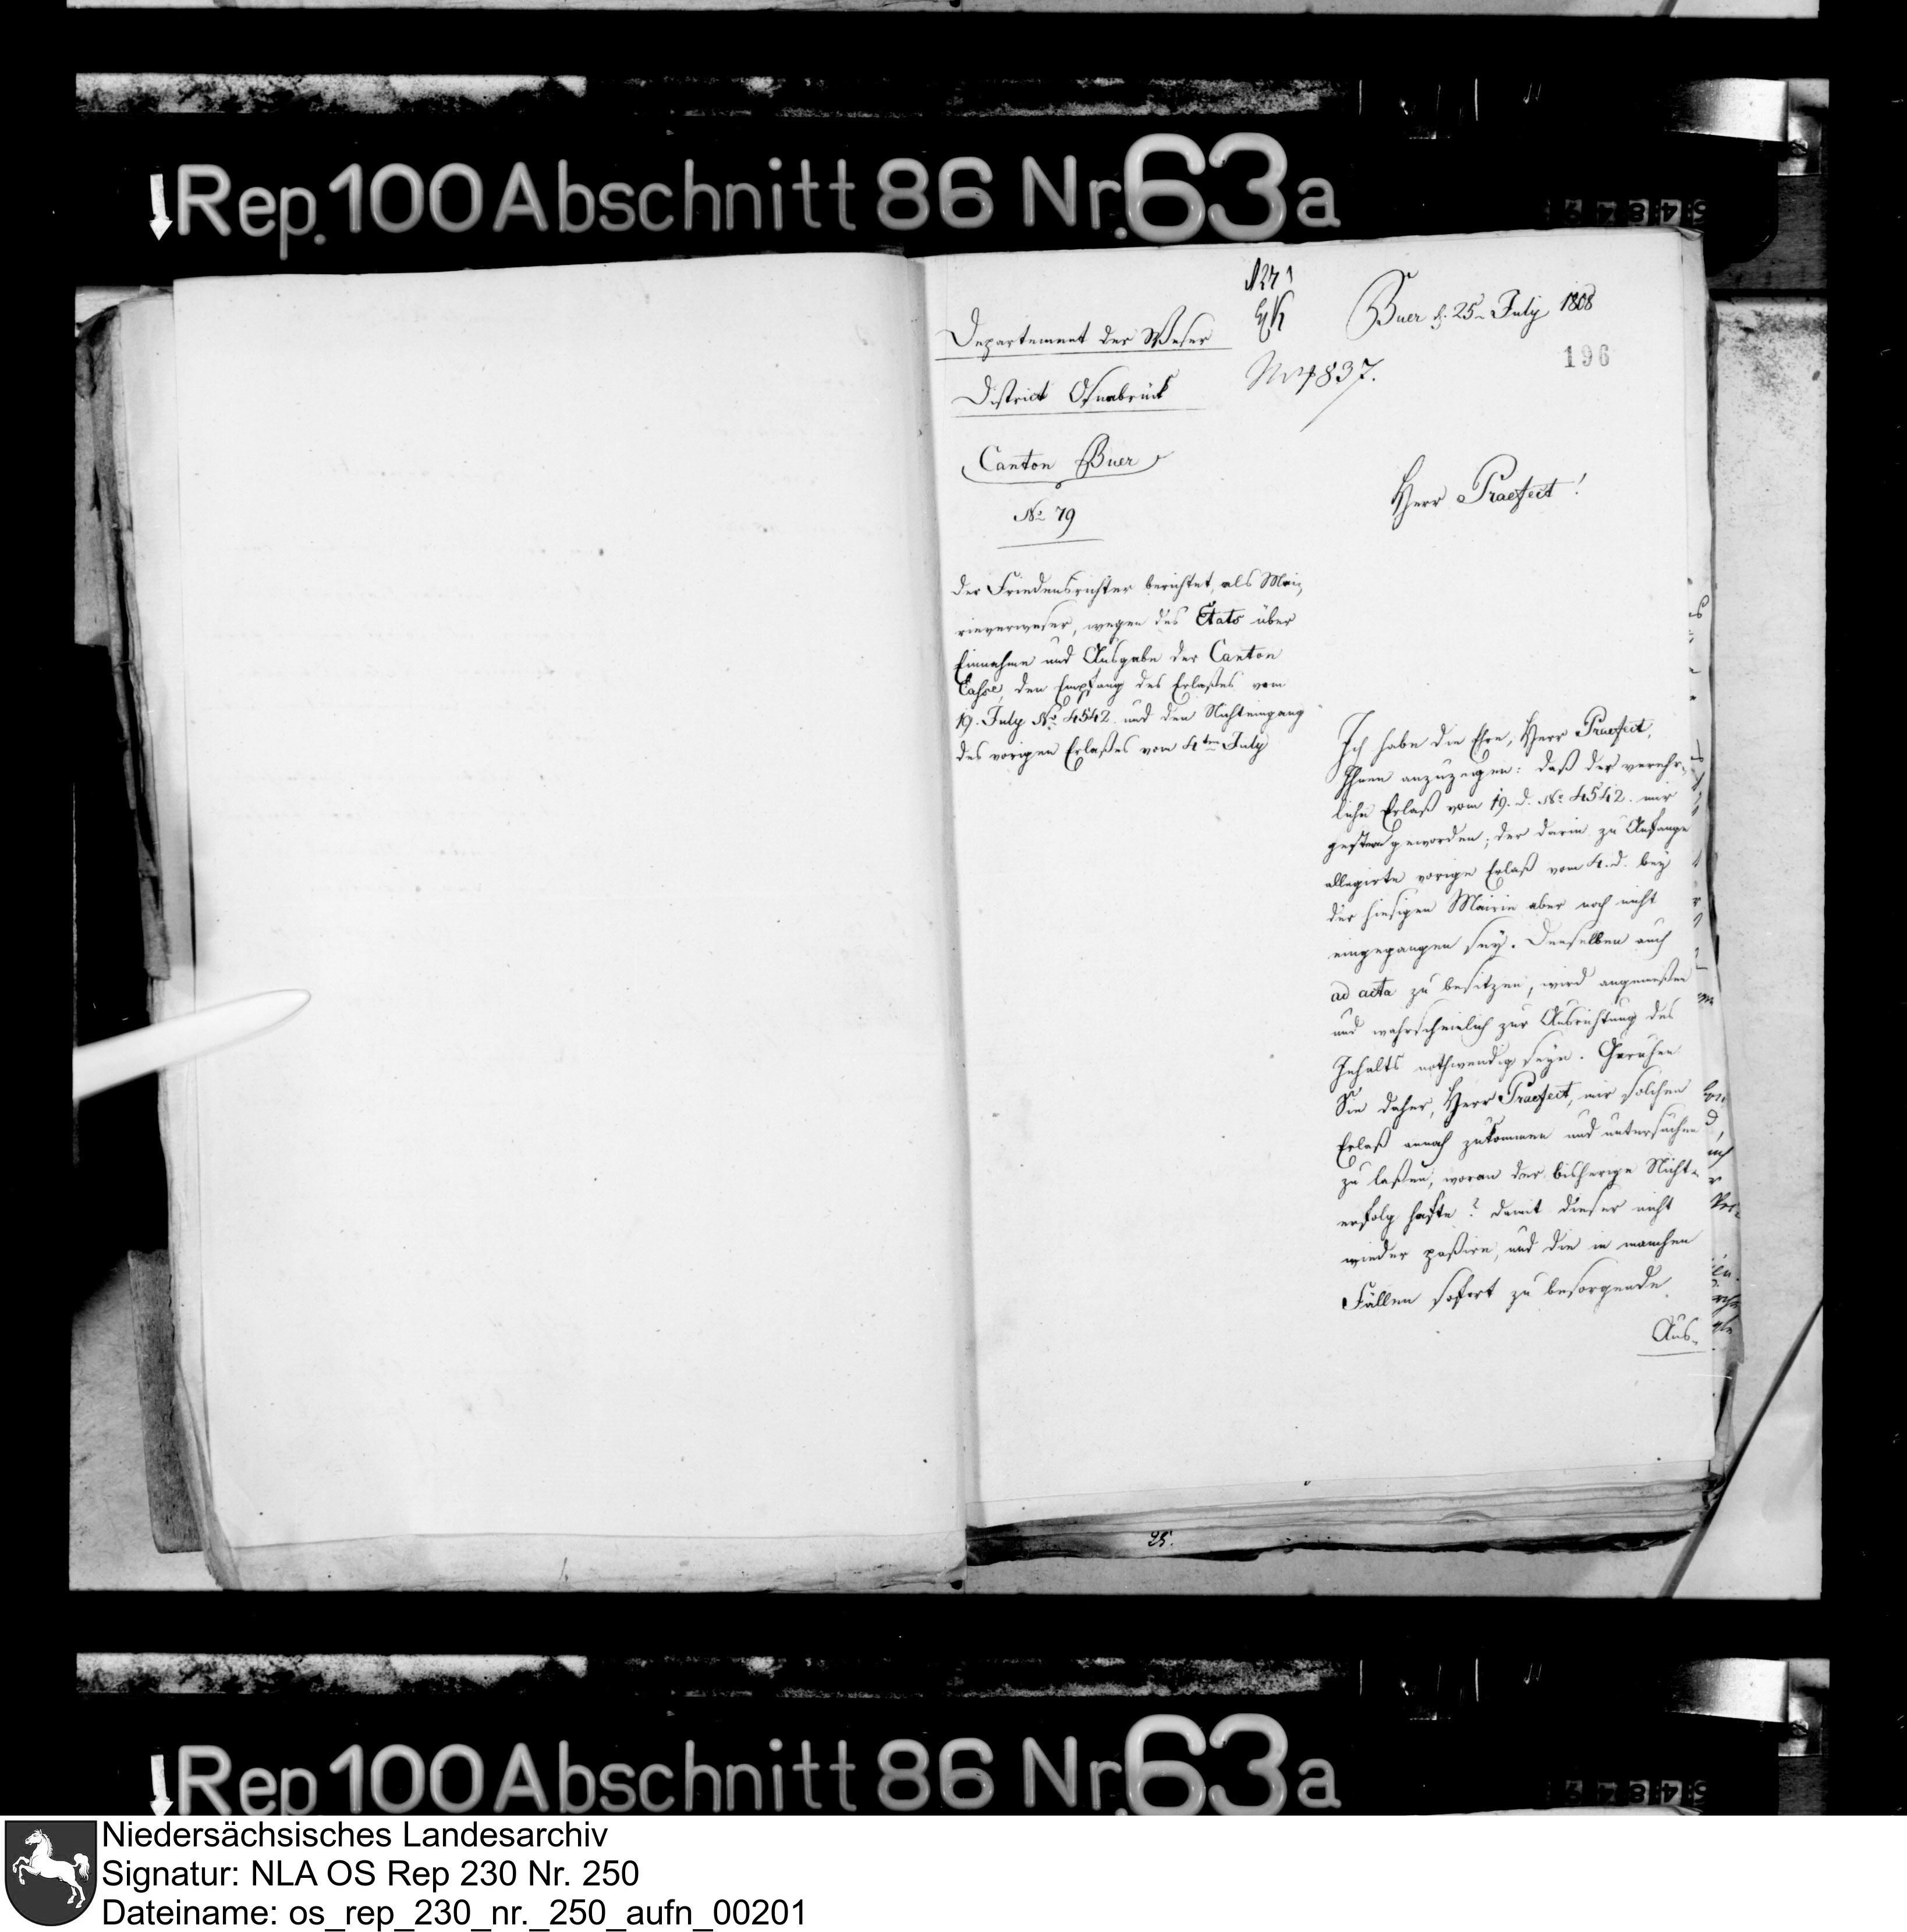 Rep. 100 Abschnitt 86 Nr. 63a
Departement der Weser
District Osnabrück
Canton Buer
No 79
Buer d. 25n July 1808
196
No 4837.
Herr Praefect!
Der Friedensrichter berichtet, als Mai-
rieverweser, wegen des Etats über
Einnahme und Ausgabe der Canton
Casse, den Empfang des Erlaßes vom
19. July No 4542. und den Nichteingang
des vorigen Erlaßes vom 4ten July
Ich habe die Ehre, Herr Praefect,
Ihnen anzuzeigen: daß der verehr-
liche Erlaß vom 19. d. No 4542. mir
gestern geworden; der darin zu Anfange
allegirte vorige Erlaß vom 4. d. bey
der hiesigen Mairie aber noch nicht
eingegangen sey. Denselben auch
ad acta zu besitzen, wird angemeßen
und wahrscheinlich zur Ausrichtung des
Inhalts nothwendig seyn. Geruhen
Sie daher, Herr Praefect, mir solchen
Erlaß annoch zukommen und untersuchen
zu laßen, woran der bisherige Nicht-
erfolg hafte? damit dieser nicht
wieder paßire, und die in manchen
Fällen sofort zu besorgende
Aus-
25.
Rep 100 Abschnitt 86 Nr. 63a
Niedersächsisches Landesarchiv
Signatur: NLA OS Rep 230 Nr. 250
Dateiname: os_rep_230_nr._250_aufn_00201